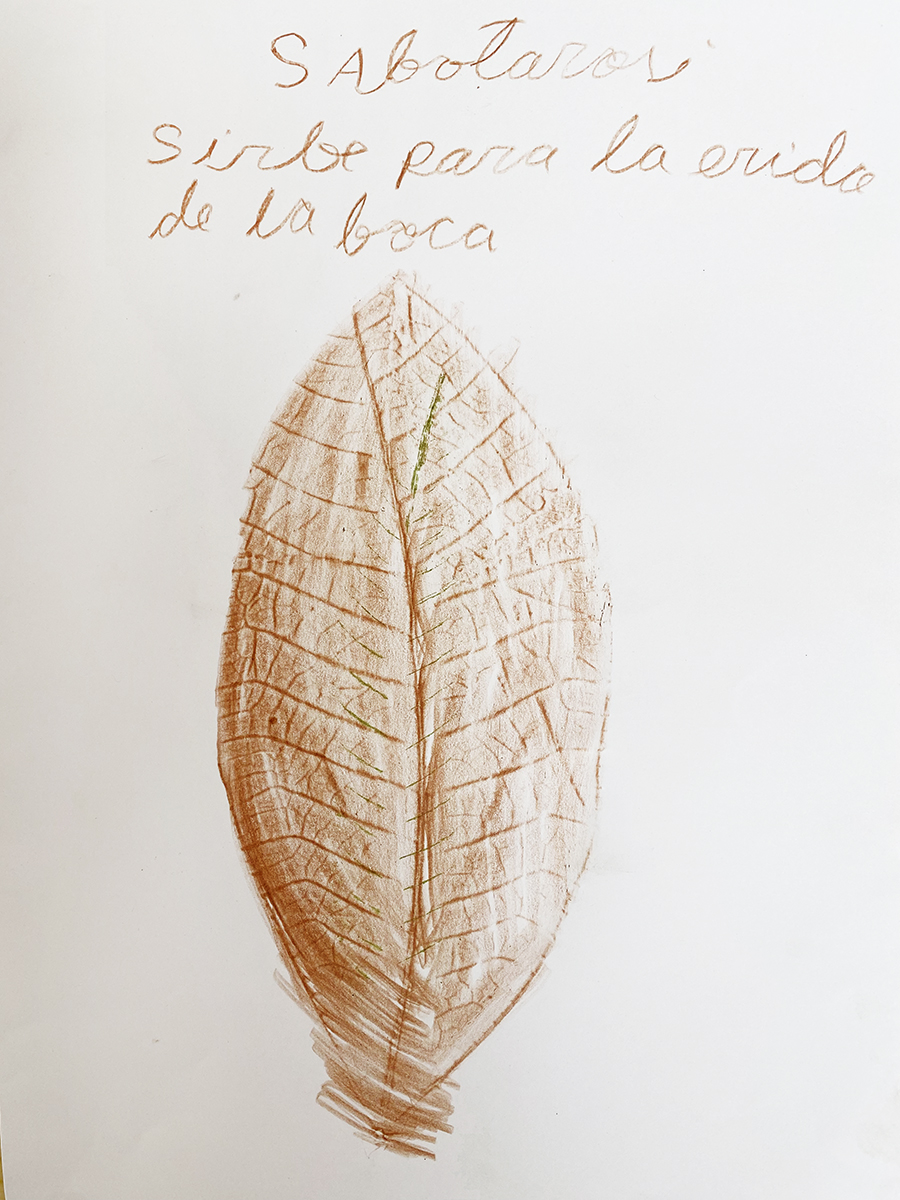 SAbotarosi
Sirbe para la erida
de la boca